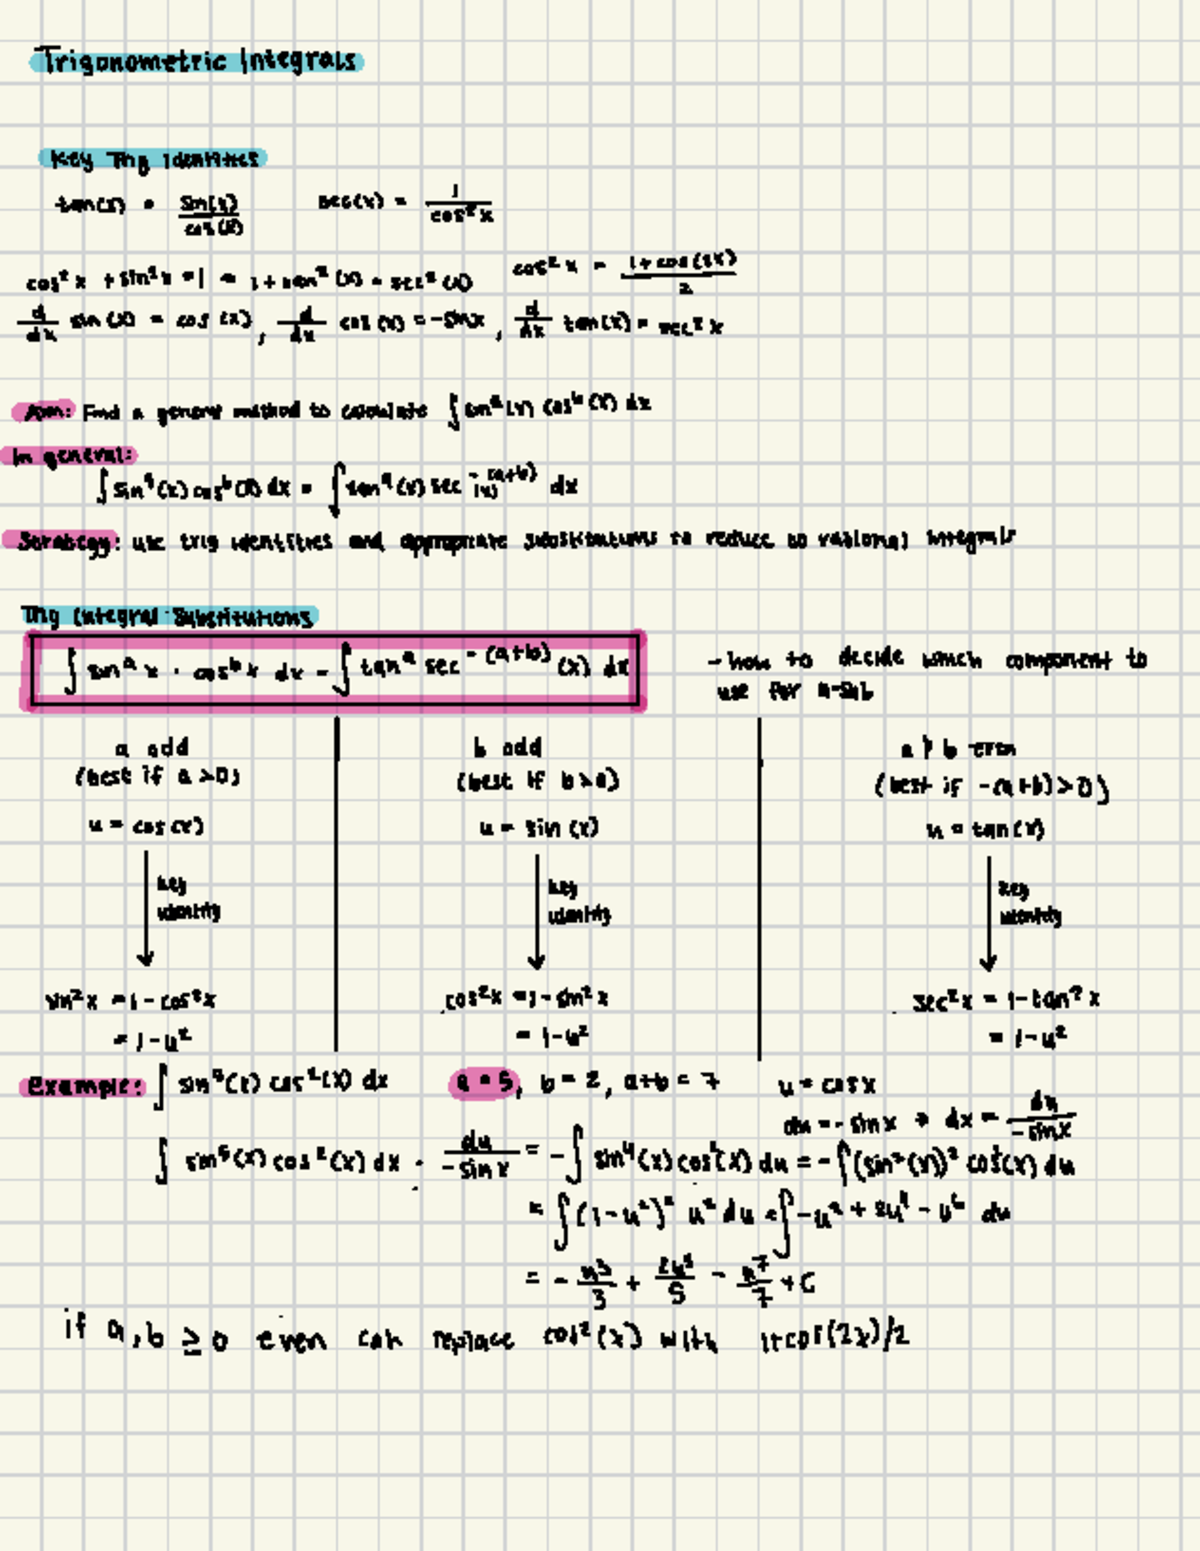 Trigonometric Integrals
Key Trig Identities
tan(x) = sin(x)/cos(x)   sec(x) = 1/cos²x
cos²x + sin²x = 1 = 1 + tan²(x) = sec²(x)   cos²x = 1+cos(2x)/2
d/dx sin(x) = cos(x), d/dx cos(x) = -sinx, d/dx tan(x) = sec²x
Aim: Find a general method to calculate ∫ sinᵃ(x) cosᵇ(x) dx
In general:
∫ sinᵃ(x) cosᵇ(x) dx = ∫ tanᵃ(x) sec^-(a+b)(x) dx
Strategy: use trig identities and appropriate substitutions to reduce to rational integrals
Trig Integral Substitutions
∫ sinᵃ x · cosᵇ x dx = ∫ tanᵃ sec^-(a+b) (x) dx
- how to decide which component to
use for u-sub
a odd   b odd   a, b even
(best if a >0)   (best if b>0)   (best if -(a+b)>0)
u = cos(x)   u = sin(x)   u = tan(x)
key   key   key
identity   identity   identity
sin²x = 1-cos²x   cos²x = 1-sin²x   sec²x = 1-tan²x
= 1-u²   = 1-u²   = 1-u²
Example: ∫ sin⁵(x) cos²(x) dx   a = 5, b = 2, a+b = 7   u = cosx
du = -sinx → dx = du/-sinx
∫ sin⁵(x) cos²(x) dx · du/-sinx = -∫ sin⁴(x) cos²(x) du = -∫ (sin²(x))² cos²(x) du
= ∫ (1-u²)² u² du = ∫ -u² + 2u⁴ - u⁶ du
= - u³/3 + 2u⁵/5 - u⁷/7 + C
if a,b ≥ 0 even can replace cos²(x) with 1+cos(2x)/2